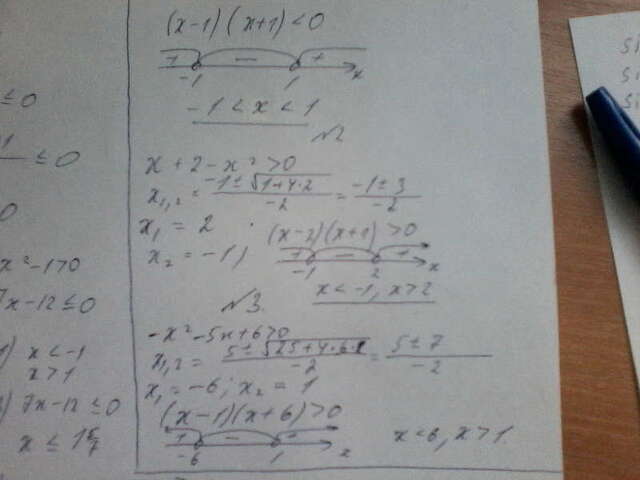 ≤0
1
— ≤ 0
0
x²-1>0
7x-12≤0
1) x<-1
x>1
2) 7x-12≤0
x ≤ 1 5/7
(x-1)(x+1)<0
+ - +
-1 1 x
-1<x<1
№2
x+2-x²>0
x₁,₂ = (-1±√(1+4·2))/(-2) = (-1±3)/(-2)
x₁ = 2
(x-2)(x+1)>0
x₂ = -1;
+ - +
-1 2 x
x<-1, x>2
№3.
-x²-5x+6>0
x₁,₂ = (5±√(25+4·6·1))/(-2) = (5±7)/(-2)
x₁=-6; x₂=1
(x-1)(x+6)>0
+ - +
-6 1 x
x<6, x>1.
si
si
si